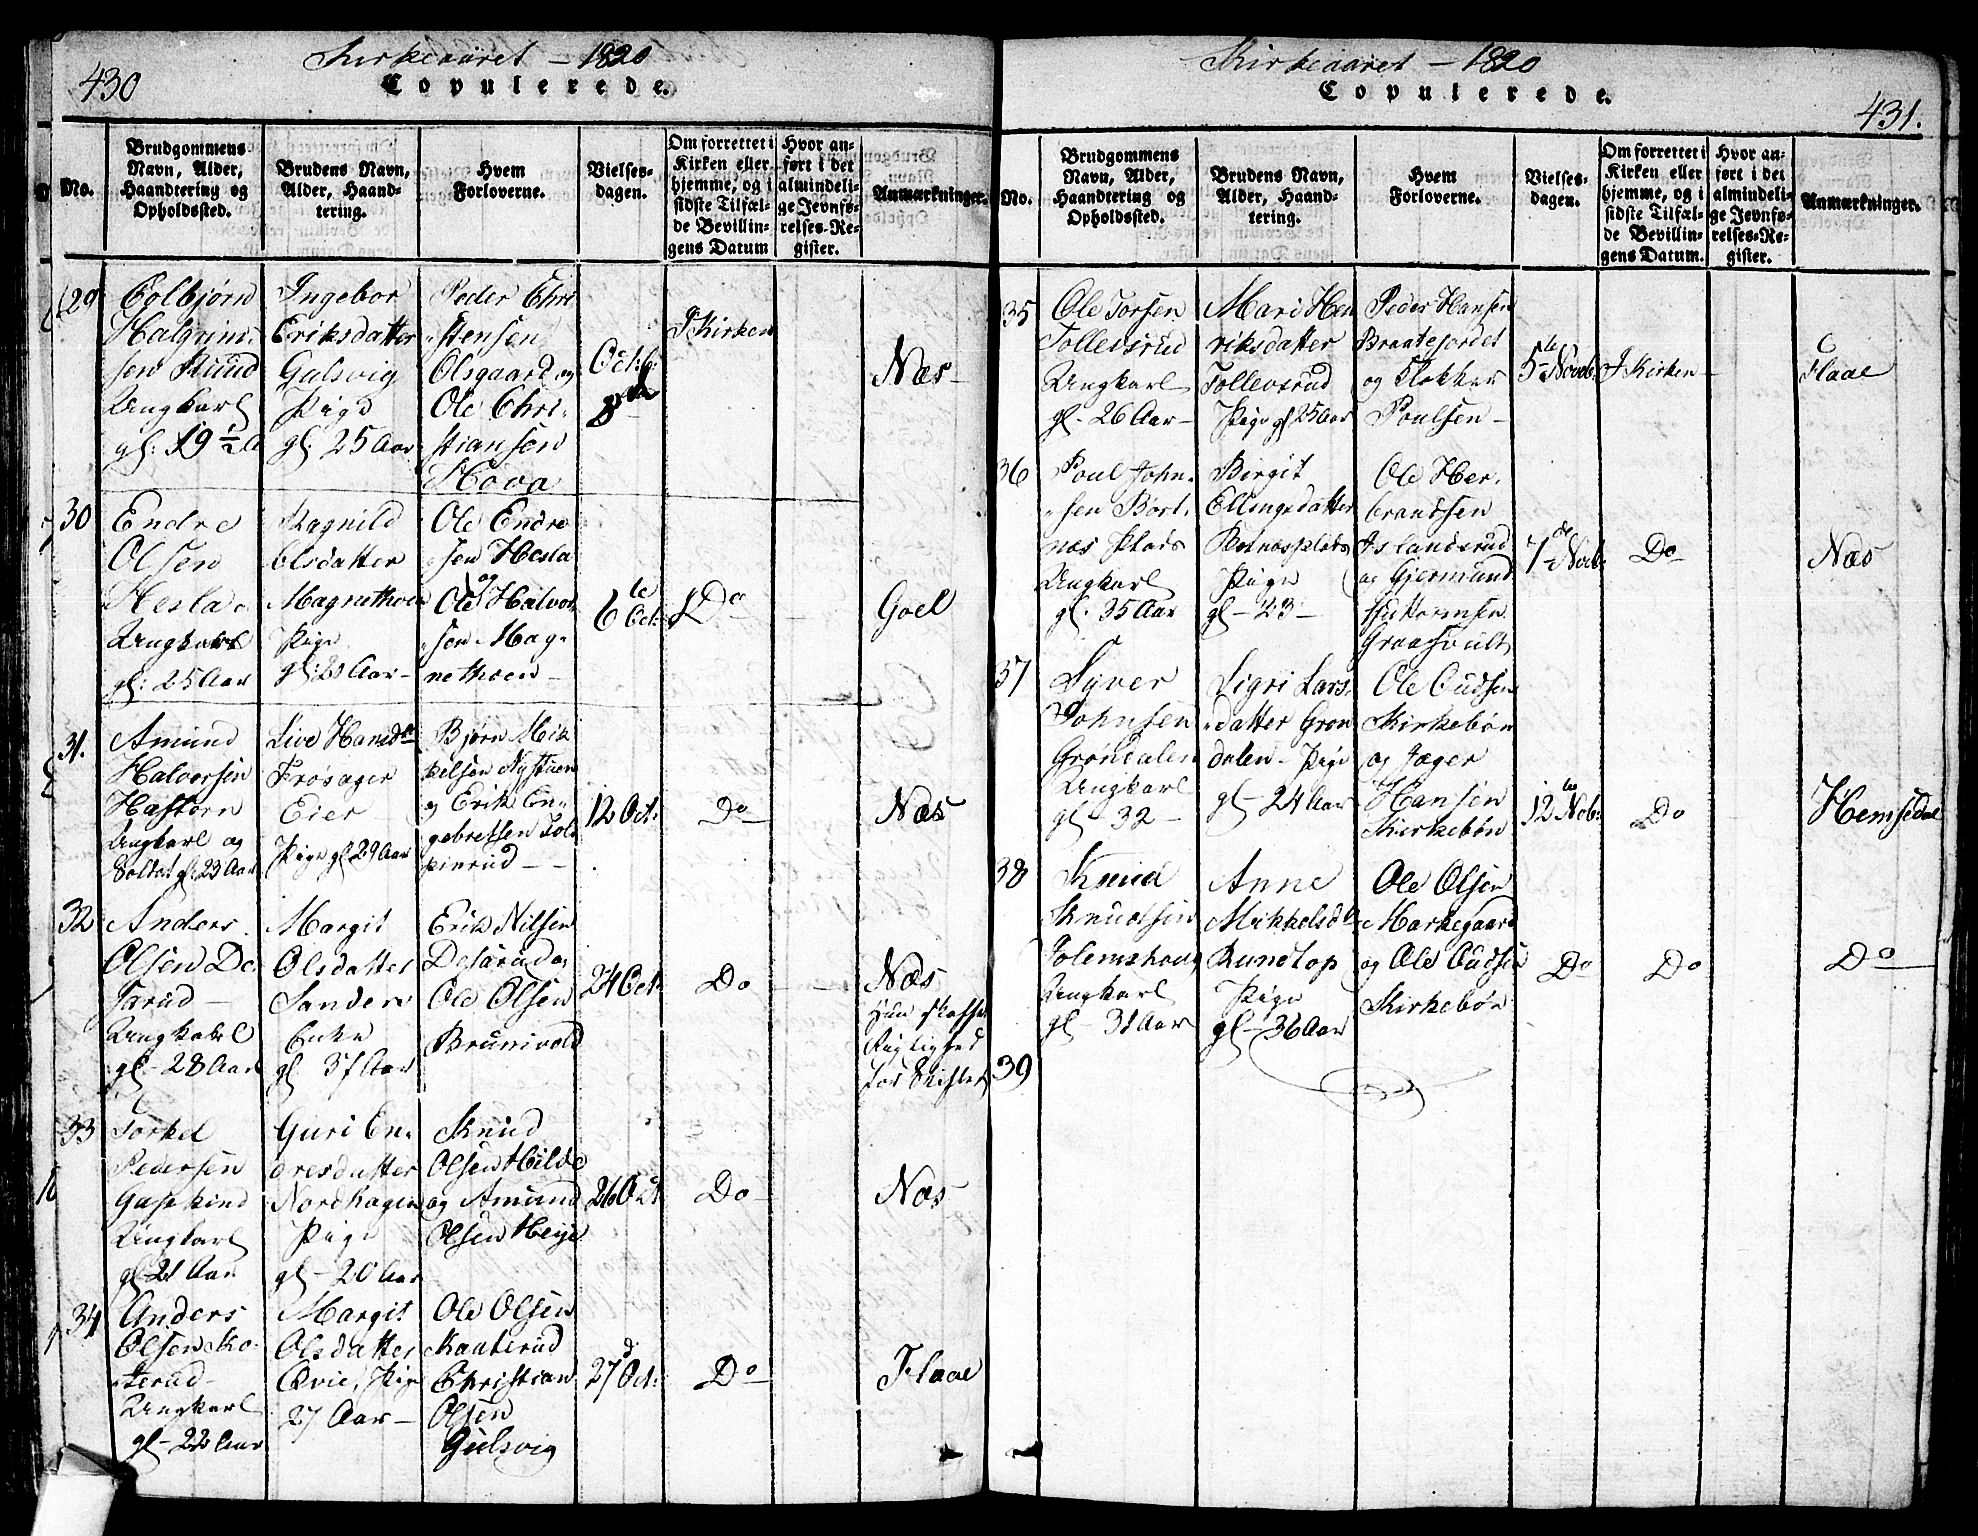 430
Kirkeaaret - 1820
Copulerede.
No.
Brudgommens
Navn, Alder,
Haandtering og
Opholdssted.
Brudens Navn,
Alder, Haand-
tering.
Hvem
Forloverne.
Vielses-
dagen.
Om forrettet i
Kirken eller
hjemme, og i
sidste Tilfæl-
de Bevillin-
gens Datum
Hvor an-
ført i det
almindeli-
ge Jevnfø-
relses-Re-
gister.
Anmærkninger.
29
Colbjørn
Halgrim-
sen Ruud
Ungkarl
gl: 19 1/2 A
Ingebor
Eriksdatter
Gulsvig
Pige
gl: 25 Aar
Peder Chri
stensen
Olsgaard og
Ole Chri-
stiansen
Hova
Octb:
8de
I Kirken
Næs
30
Endre
Olsen
Hesla
Ungkarl
gl: 25 Aar
Ragnild
Olsdatter
Magnethoen
Pige
gl: 23 Aar
Ole Endre
sen Hesla
og
Ole Halvor
sen Mag-
nethoen
6te Oct:
Do
Goel
31.
Amund
Halvorsen
Haftorn
Ungkarl og
Soldat gl: 23 Aar
Live Hansdtr
Frøsager
Eier
Pige gl 29 Aar
Bjørn Mik
kelsen Nystuen
og Erik En-
gebretsen Tols
pinrud
12 Oct:
Do
Næs
32
Anders
Olsen De
sarud
Ungkarl
gl - 28 Aar
Margit
Olsdatter
Sandere
Enke
gl 37 Aar
Erik Nilsen
Desarud og
Ole Olsen
Brunivold
24 Oct:
Do
Næs
Hun skaffe
Rigtighed
for Skiftet
33
Torkel
Pedersen
Gasekind
Ungkarl
gl 21 Aar
Guri En-
dresdatter
Nordhagen
Pige
gl - 20 Aar
Knud
Olsen Hilde
og Amund
Olsen Heije
26 Oct
Do
Næs
34
Anders
Olsen Ko-
terud
Ungkarl
gl - 22 Aar
Margit
Olsdatter
Qvie, Pige
27 Aar
Ole Olsen
Kaaterud
Christian
Olsen
Gulsvig
27d Oct:
Do
Flaae
Kirkeaaret - 1820
Copulerede.
431.
No.
Brudgommens
Navn, Alder,
Haandtering og
Opholdssted.
Brudens Navn,
Alder, Haand-
tering.
Hvem
Forloverne.
Vielses-
dagen.
Om forrettet i
Kirken eller
hjemme, og i
sidste Tilfæl-
de Bevillin-
gens Datum.
Hvor an-
ført i det
almindeli-
ge Jevnfø-
relses-Re-
gister.
Anmærkninger.
35
Ole Torsen
Tollevsrud
Ungkarl
gl - 26 Aar
Mari Hen
riksdatter
Tollevsrud
Pige gl 25 Aar
Peder Hansen
Braatejordet
og Klokker
Poulsen
5te Novb:
I Kirken
Flaae
36
Poul John-
sen Bort-
næs Plads
Ungkarl
gl. 35 Aar
Birgit
Ellingsdatter
Botnæsplads
Pige
gl - 23
Ole Her-
brandsen
Islandsrud
og Gjermund
Guttormsen
Graasvult
7de Novb:
Do
Næs
37
Syver
Johnsen
Grøndalen
Ungkarl
gl - 32
Sigri Lars-
datter Grøn
dalen - Pige
gl - 24 Aar
Ole Gudsen
Kirkebøn
og Jæger
Hansen
Kirkebøn
12te Nob:
Do
Hemsedal
38
Knud
Knudsen
Tolemshoug
Ungkarl
gl - 31 Aar
Anne
Mikkelsdtr
Rundtop
Pige
gl - 36 Aar
Ole Olsen
Markegaard
og Ole Gudsen
Kirkebøn
Do
Do
Do
39